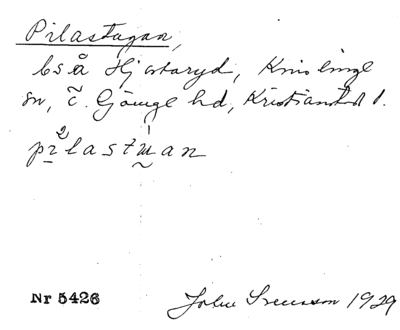 Pilastugan,
bså Hjärtaryd, Knislinge
sn, Ö. Göinge hd, Kristianstad l.
Nr 5426
John Svensson 1929